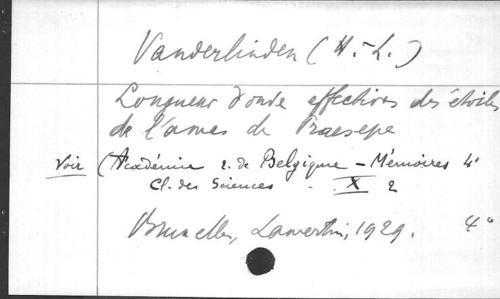 Vanderlinden (H.-L.)
Longueur d'onde effectives des étoiles
de l'amas de Praesepe
Voir (Académie r. de Belgique - Mémoires 4°
Cl. des Sciences . X 2
Bruxelles, Lamertin, 1929. 4°